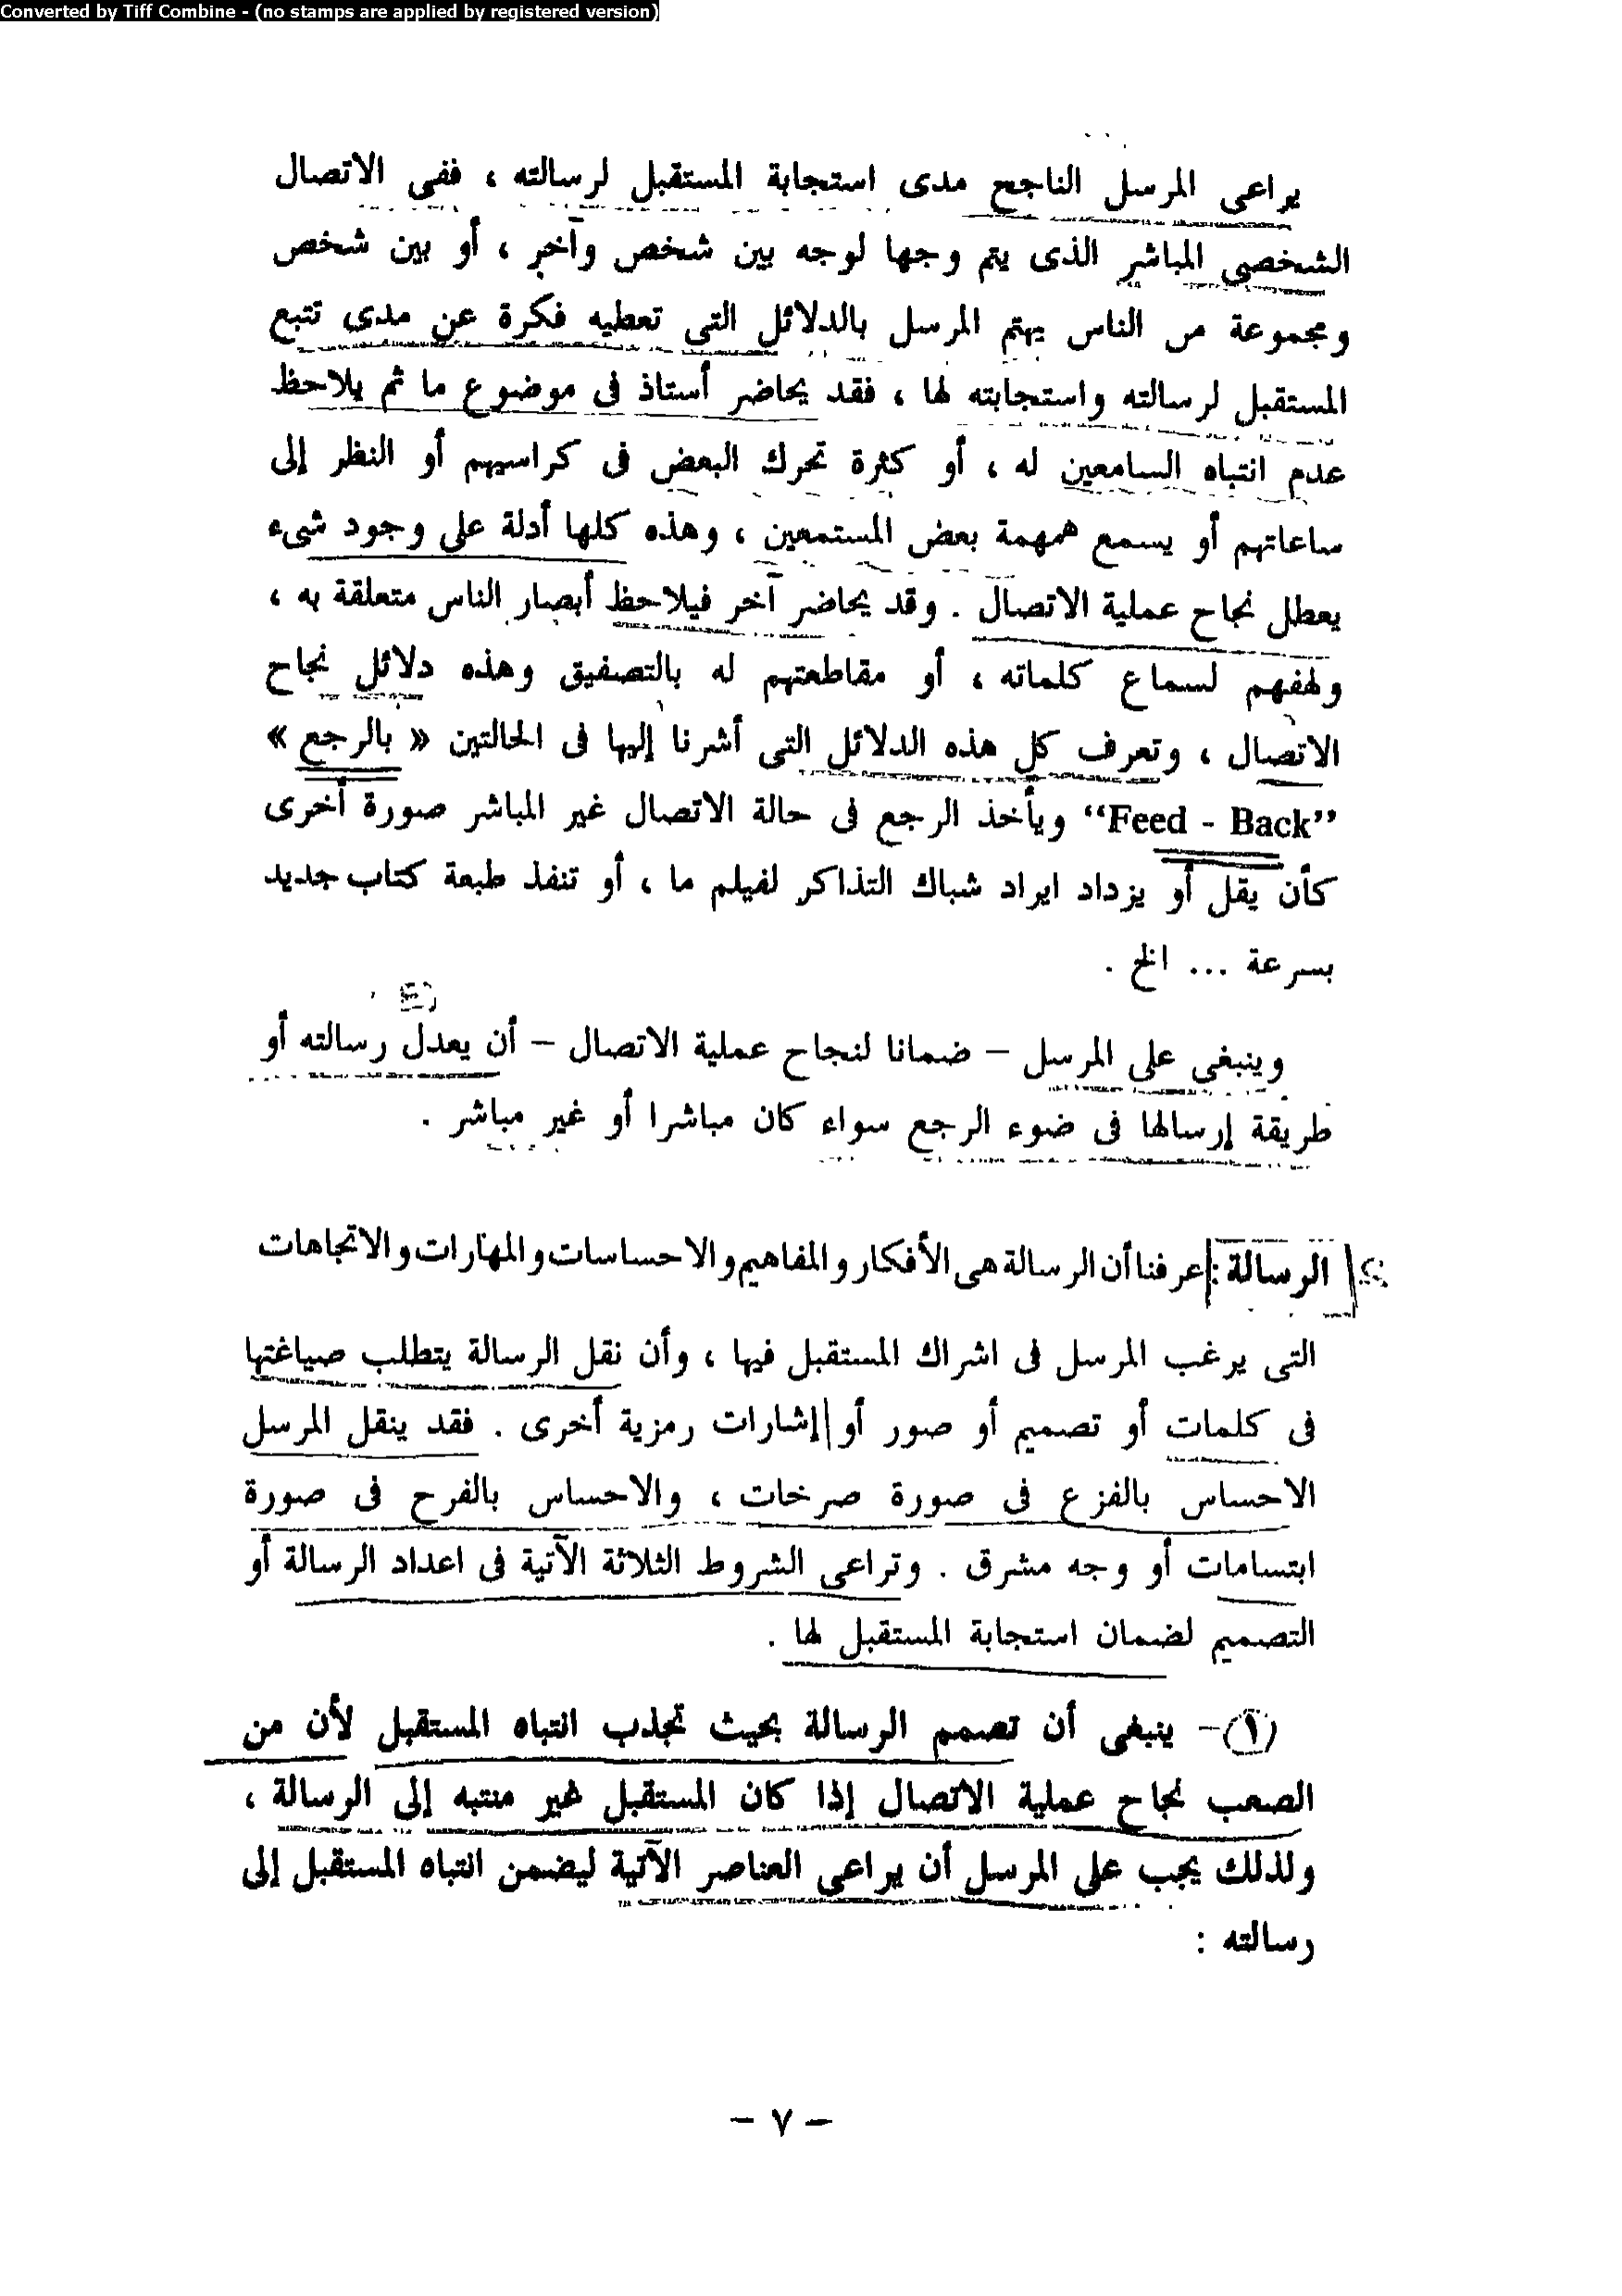 Converted by Tiff Combine - (no stamps are applied by registered version)
يراعى المرسل الناجح مدى استجابة المستقبل لرسالته ، ففى الاتصال
الشخصى المباشر الذى يتم وجها لوجه بين شخص وآخر ، أو بين شخص
ومجموعة من الناس يهتم المرسل بالدلائل التى تعطيه فكرة عن مدى تتبع
المستقبل لرسالته واستجابته لها ، فقد يحاضر أستاذ فى موضوع ما ثم يلاحظ
عدم انتباه السامعين له ، أو كثرة تحرك البعض فى كراسيهم أو النظر إلى
ساعاتهم أو يسمع همهمة بعض المستمعين ، وهذه كلها أدلة على وجود شىء
يعطل نجاح عملية الاتصال . وقد يحاضر آخر فيلاحظ أبصار الناس متعلقة به ،
ولهفهم لسماع كلماته ، أو مقاطعتهم له بالتصفيق وهذه دلائل نجاح
الاتصال ، وتعرف كل هذه الدلائل التى أشرنا إليها فى الحالتين « بالرجع »
“Feed - Back” ويأخذ الرجع فى حالة الاتصال غير المباشر صورة أخرى
كأن يقل أو يزداد ايراد شباك التذاكر لفيلم ما ، أو تنفذ طبعة كتاب جديد
بسرعة ... الخ .
وينبغى على المرسل – ضمانا لنجاح عملية الاتصال – أن يعدل رسالته أو
طريقة إرسالها فى ضوء الرجع سواء كان مباشرا أو غير مباشر .
الرسالة : عرفنا أن الرسالة هى الأفكار والمفاهيم والاحساسات والمهارات والاتجاهات
التى يرغب المرسل فى اشراك المستقبل فيها ، وأن نقل الرسالة يتطلب صياغتها
فى كلمات أو تصميم أو صور أو إشارات رمزية أخرى . فقد ينقل المرسل
الاحساس بالفزع فى صورة صرخات ، والاحساس بالفرح فى صورة
ابتسامات أو وجه مشرق . وتراعى الشروط الثلاثة الآتية فى اعداد الرسالة أو
التصميم لضمان استجابة المستقبل لها .
(١)- ينبغى أن تصمم الرسالة بحيث تجذب انتباه المستقبل لأن من
الصعب نجاح عملية الاتصال إذا كان المستقبل غير منتبه إلى الرسالة ،
ولذلك يجب على المرسل أن يراعى العناصر الآتية ليضمن انتباه المستقبل إلى
رسالته :
– ٧ –